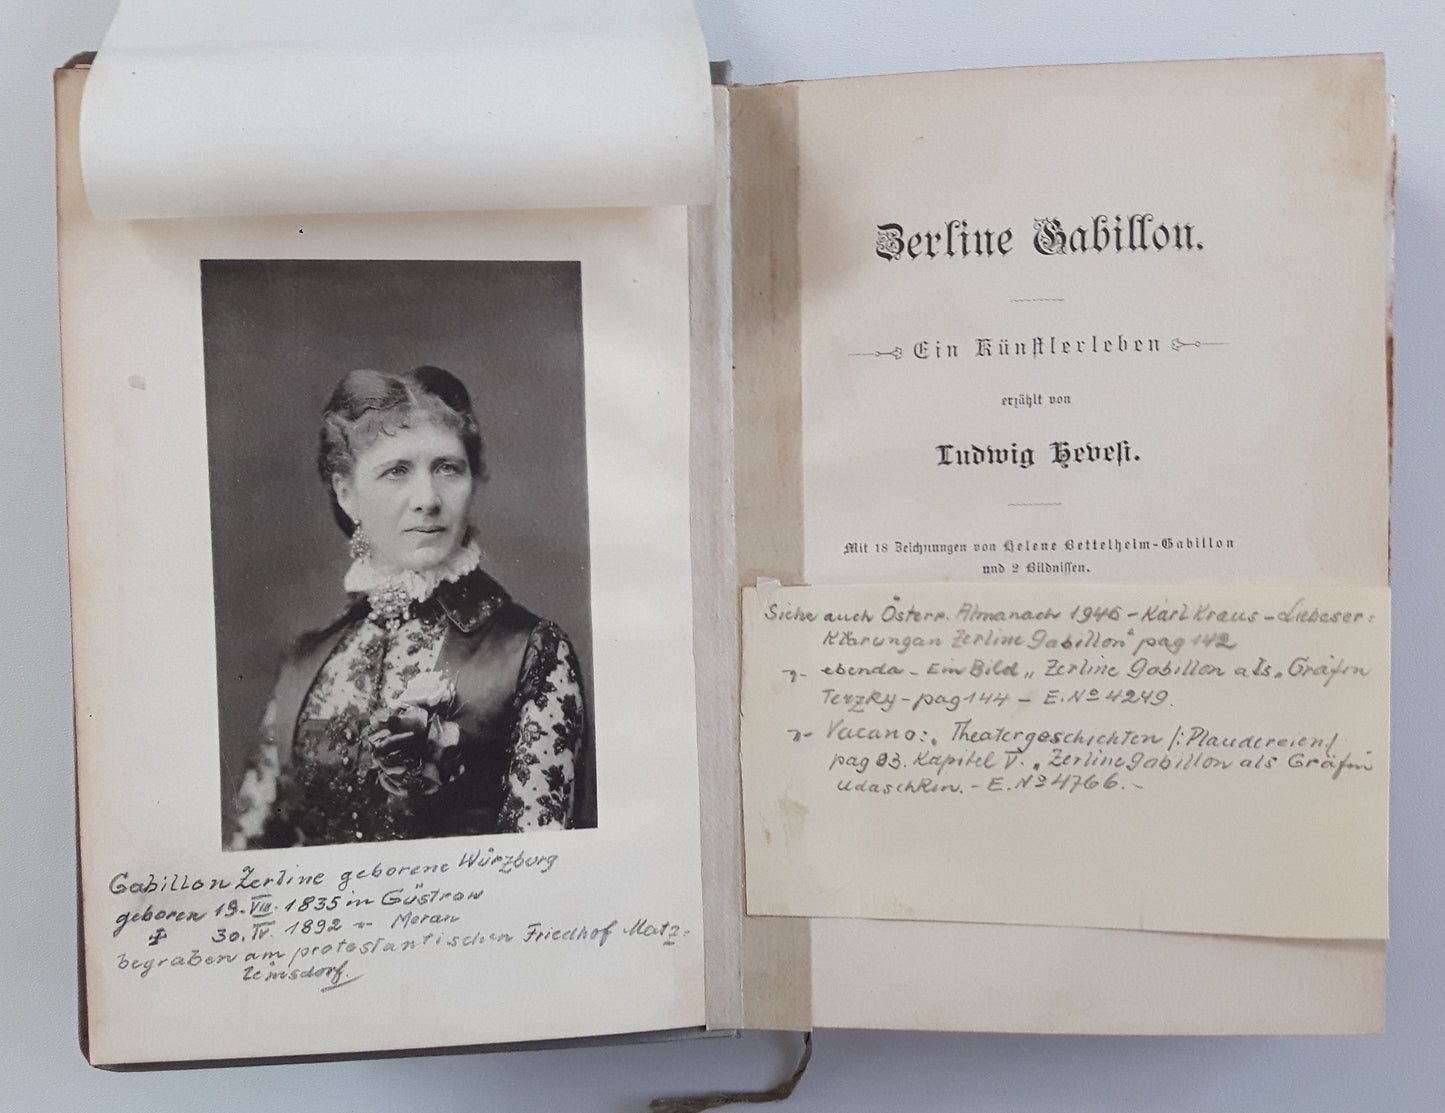 Gabillon Zerline geborene Würzburg
geboren 19. VIII. 1835 in Güstrow
‡ 30. IV. 1892 in Meran
begraben am protestantischen Friedhof Matz=
leinsdorf.
Zerline Gabillon.
Ein Künstlerleben
erzählt von
Ludwig Hevesi.
Mit 18 Zeichnungen von Helene Bettelheim-Gabillon
und 2 Bildnissen.
Siehe auch Österr. Almanach 1946 - Karl Kraus - Liebeser=
klärungan Zerline Gabillon" pag 142
ebenda - Ein Bild „ Zerline Gabillon als „ Gräfin
Terzky - pag 144 - E. No 4249.
Vacano: „ Theatergeschichten /: Plaudereien/
pag 93. Kapitel V. „ Zerline Gabillon als Gräfin
Udaschkin. - E. No 4766. -